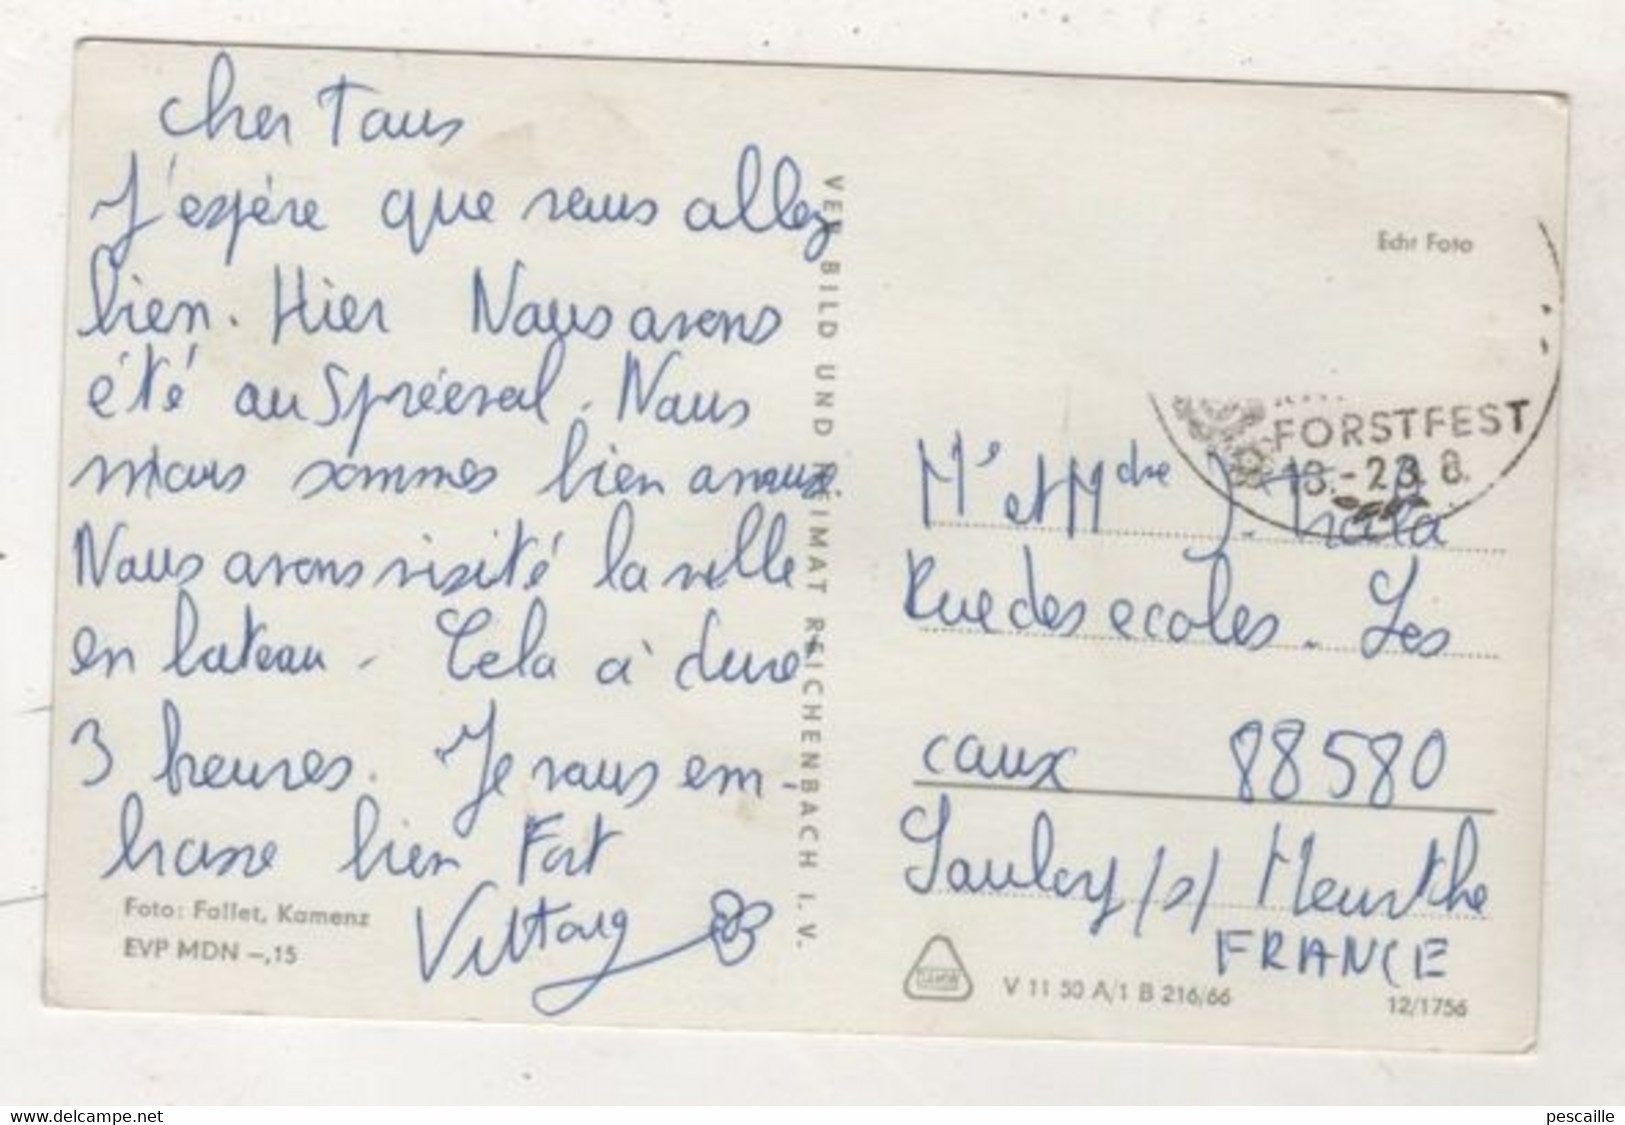 Cher Tous
J'espère que vous allez
bien. Hier Nous avons
été au Spréeval. Nous
nous sommes bien amusé
Nous avons visité la ville
en bateau. Cela à duré
3 heures. Je vous em
brasse bien Fort
Foto: Follet, Kamenz
EVP MDN –,15
VEB BILD UND HEIMAT REICHENBACH i. V.
Echt Foto
FORSTFEST
- 23. 8.
Mr et Mdme J.
Rue des ecoles. Les
caux 88580
Saulcy /s/ Meurthe
FRANCE
V 11 50 A/1 B 216/66
12/1756
www.delcampe.net
pescaille